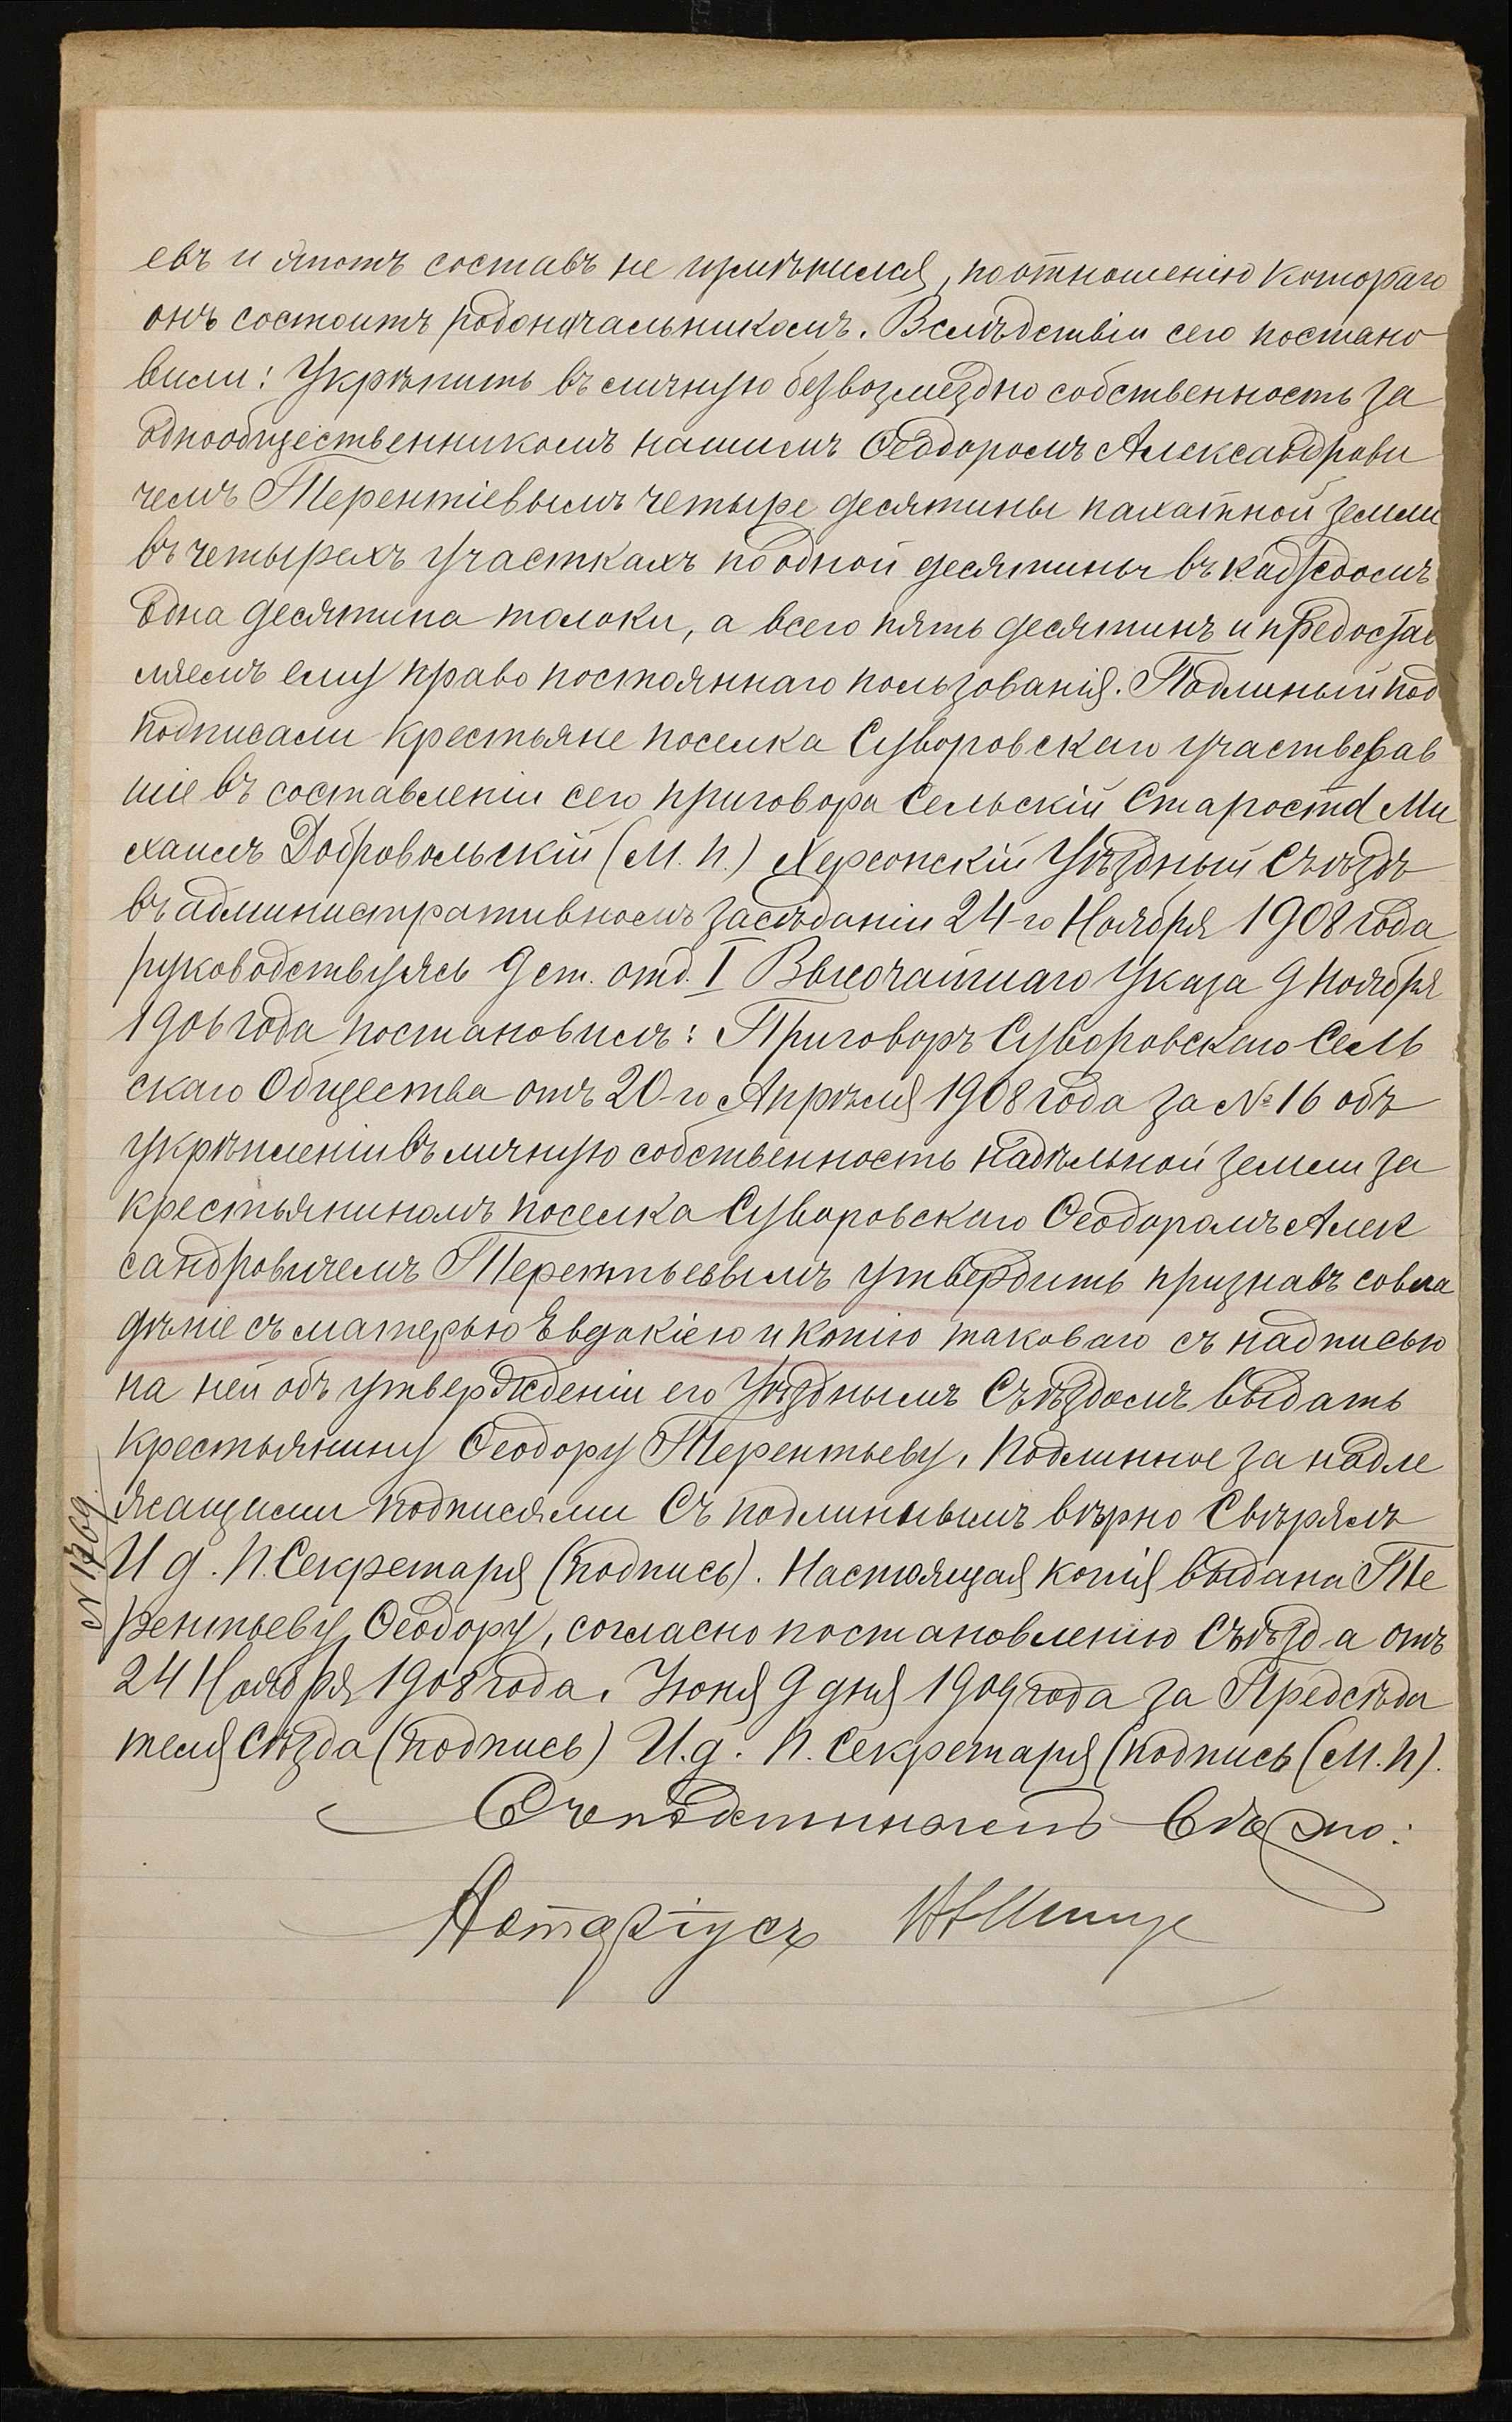 евъ и этотъ составъ не измѣнился, по отношенію котораго
онъ состоитъ родоначальникомъ. Вслѣдствіи сего постано
вили: Укрѣпить въ личную безвозмездно собственность за
однообщественникомъ нашимъ Ѳеодоромъ Александрови
чемъ Терентіевымъ четыре десятины пахатной земли
въ четырехъ участкахъ по одной десятины въ каждомъ
одна десятина толоки, а всего пять десятинъ и предостав
ляемъ ему право постояннаго пользованія. Подлиный под
подписали крестьяне поселка Суворовскаго участвовав
шіе въ составленіи сего приговора Сельскій Староста Ми
хаилъ Добровольскій (М. П.) Херсонскій Уѣздный Съѣздъ
въ административномъ засѣданіи 24-го Ноября 1908 года
руководствуясь 9 ст. отд. I Высочайшаго Указа 9 Ноября
1906 года постановилъ: Приговоръ Суворовскаго Сель
скаго Общества отъ 20-го Апрѣля 1908 года за № 16 объ
укрѣпленіи въ личную собственность надѣльной земли за
крестьяниномъ поселка Суворовскаго Ѳеодоромъ Алек
сандровичемъ Терентьевымъ утвердить признавъ совла
дѣніе съ матерью Евдокіею и копію таковаго съ надписью
на ней объ утвержденіи его Уѣзднымъ Съѣздомъ выдать
крестьянину Ѳеодору Терентьеву. Подлинное за надле
жащими подписями Съ подлиннымъ вѣрно Свѣрялъ
И д. П. Секретаря (подпись). Настоящая копія выдана Те
рентьеву Ѳеодору, согласно постановленію Съѣзда отъ
24 Ноября 1908 года. Іюня 9 дня 1909 года за Предсѣда
теля Сѣзда (подпись) И. д. П. Секретаря (подпись (М. П).
№ 1769.
Съ подлиннымъ вѣрно:
Нотаріусъ